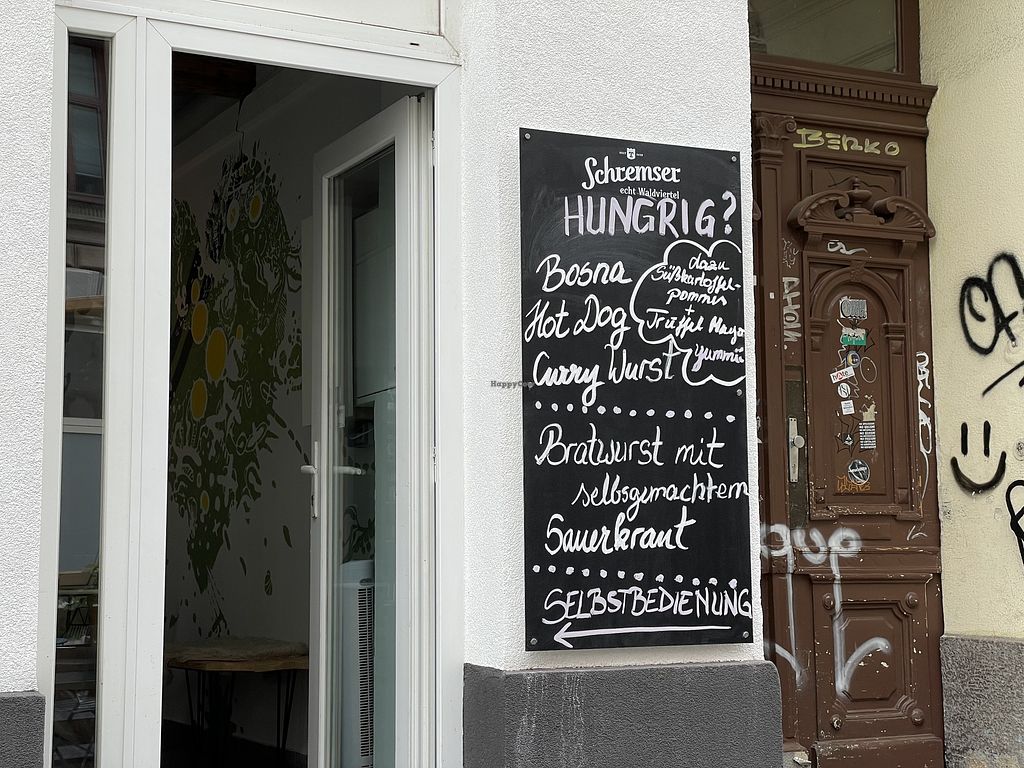 Schremser
echt Waldviertel
HUNGRIG?
Bosna
Hot Dog
Curry Wurst
dazu
Süßkartoffel-
pommis
+
Trüffel Mayo
Yummii
Bratwurst mit
selbsgemachtem
Sauerkraut
SELBSTBEDIENUNG
BERKO
HappyCow